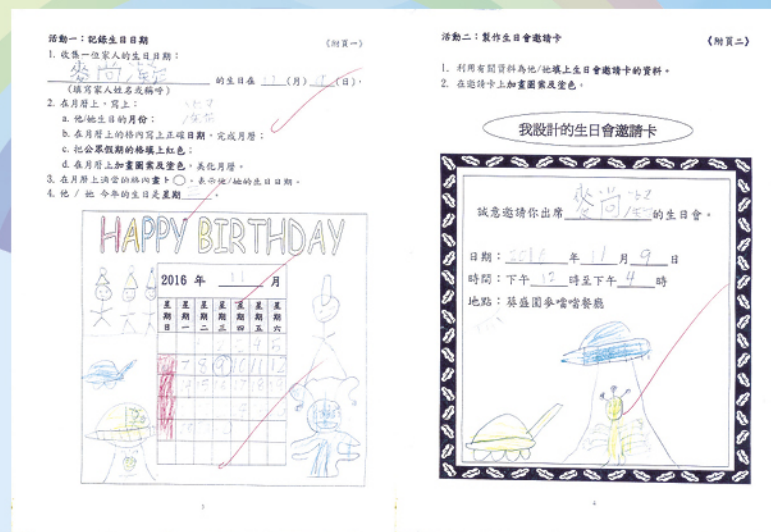 活動一：記錄生日日期
〈附頁一〉
1. 收集一位家人的生日日期：
麥尚 的生日在 11 (月) 9 (日)。
(填寫家人姓名或稱呼)
2. 在月曆上，寫上：
a. 他/她生日的月份；
b. 在月曆上的格內寫上正確日期，完成月曆；
c. 把公眾假期的格填上紅色；
d. 在月曆上加畫圖案及塗色，美化月曆。
3. 在月曆上適當的格內畫上○，表示他/她的生日日期。
4. 他 / 她 今年的生日是星期 三 。
HAPPY BIRTHDAY
2016 年 11 月
星期日 星期一 星期二 星期三 星期四 星期五 星期六
1 2 3 4 5
7 8 9 10 11 12
14 15 16 17 18 19
3
活動二：製作生日會邀請卡
《附頁二》
1. 利用有關資料為他/她填上生日會邀請卡的資料。
2. 在邀請卡上加畫圖案及塗色。
我設計的生日會邀請卡
誠意邀請你出席 麥尚 的生日會。
日期： 2016 年 11 月 9 日
時間：下午 12 時至下午 4 時
地點：葵盛圍麥噹噹餐廳
4